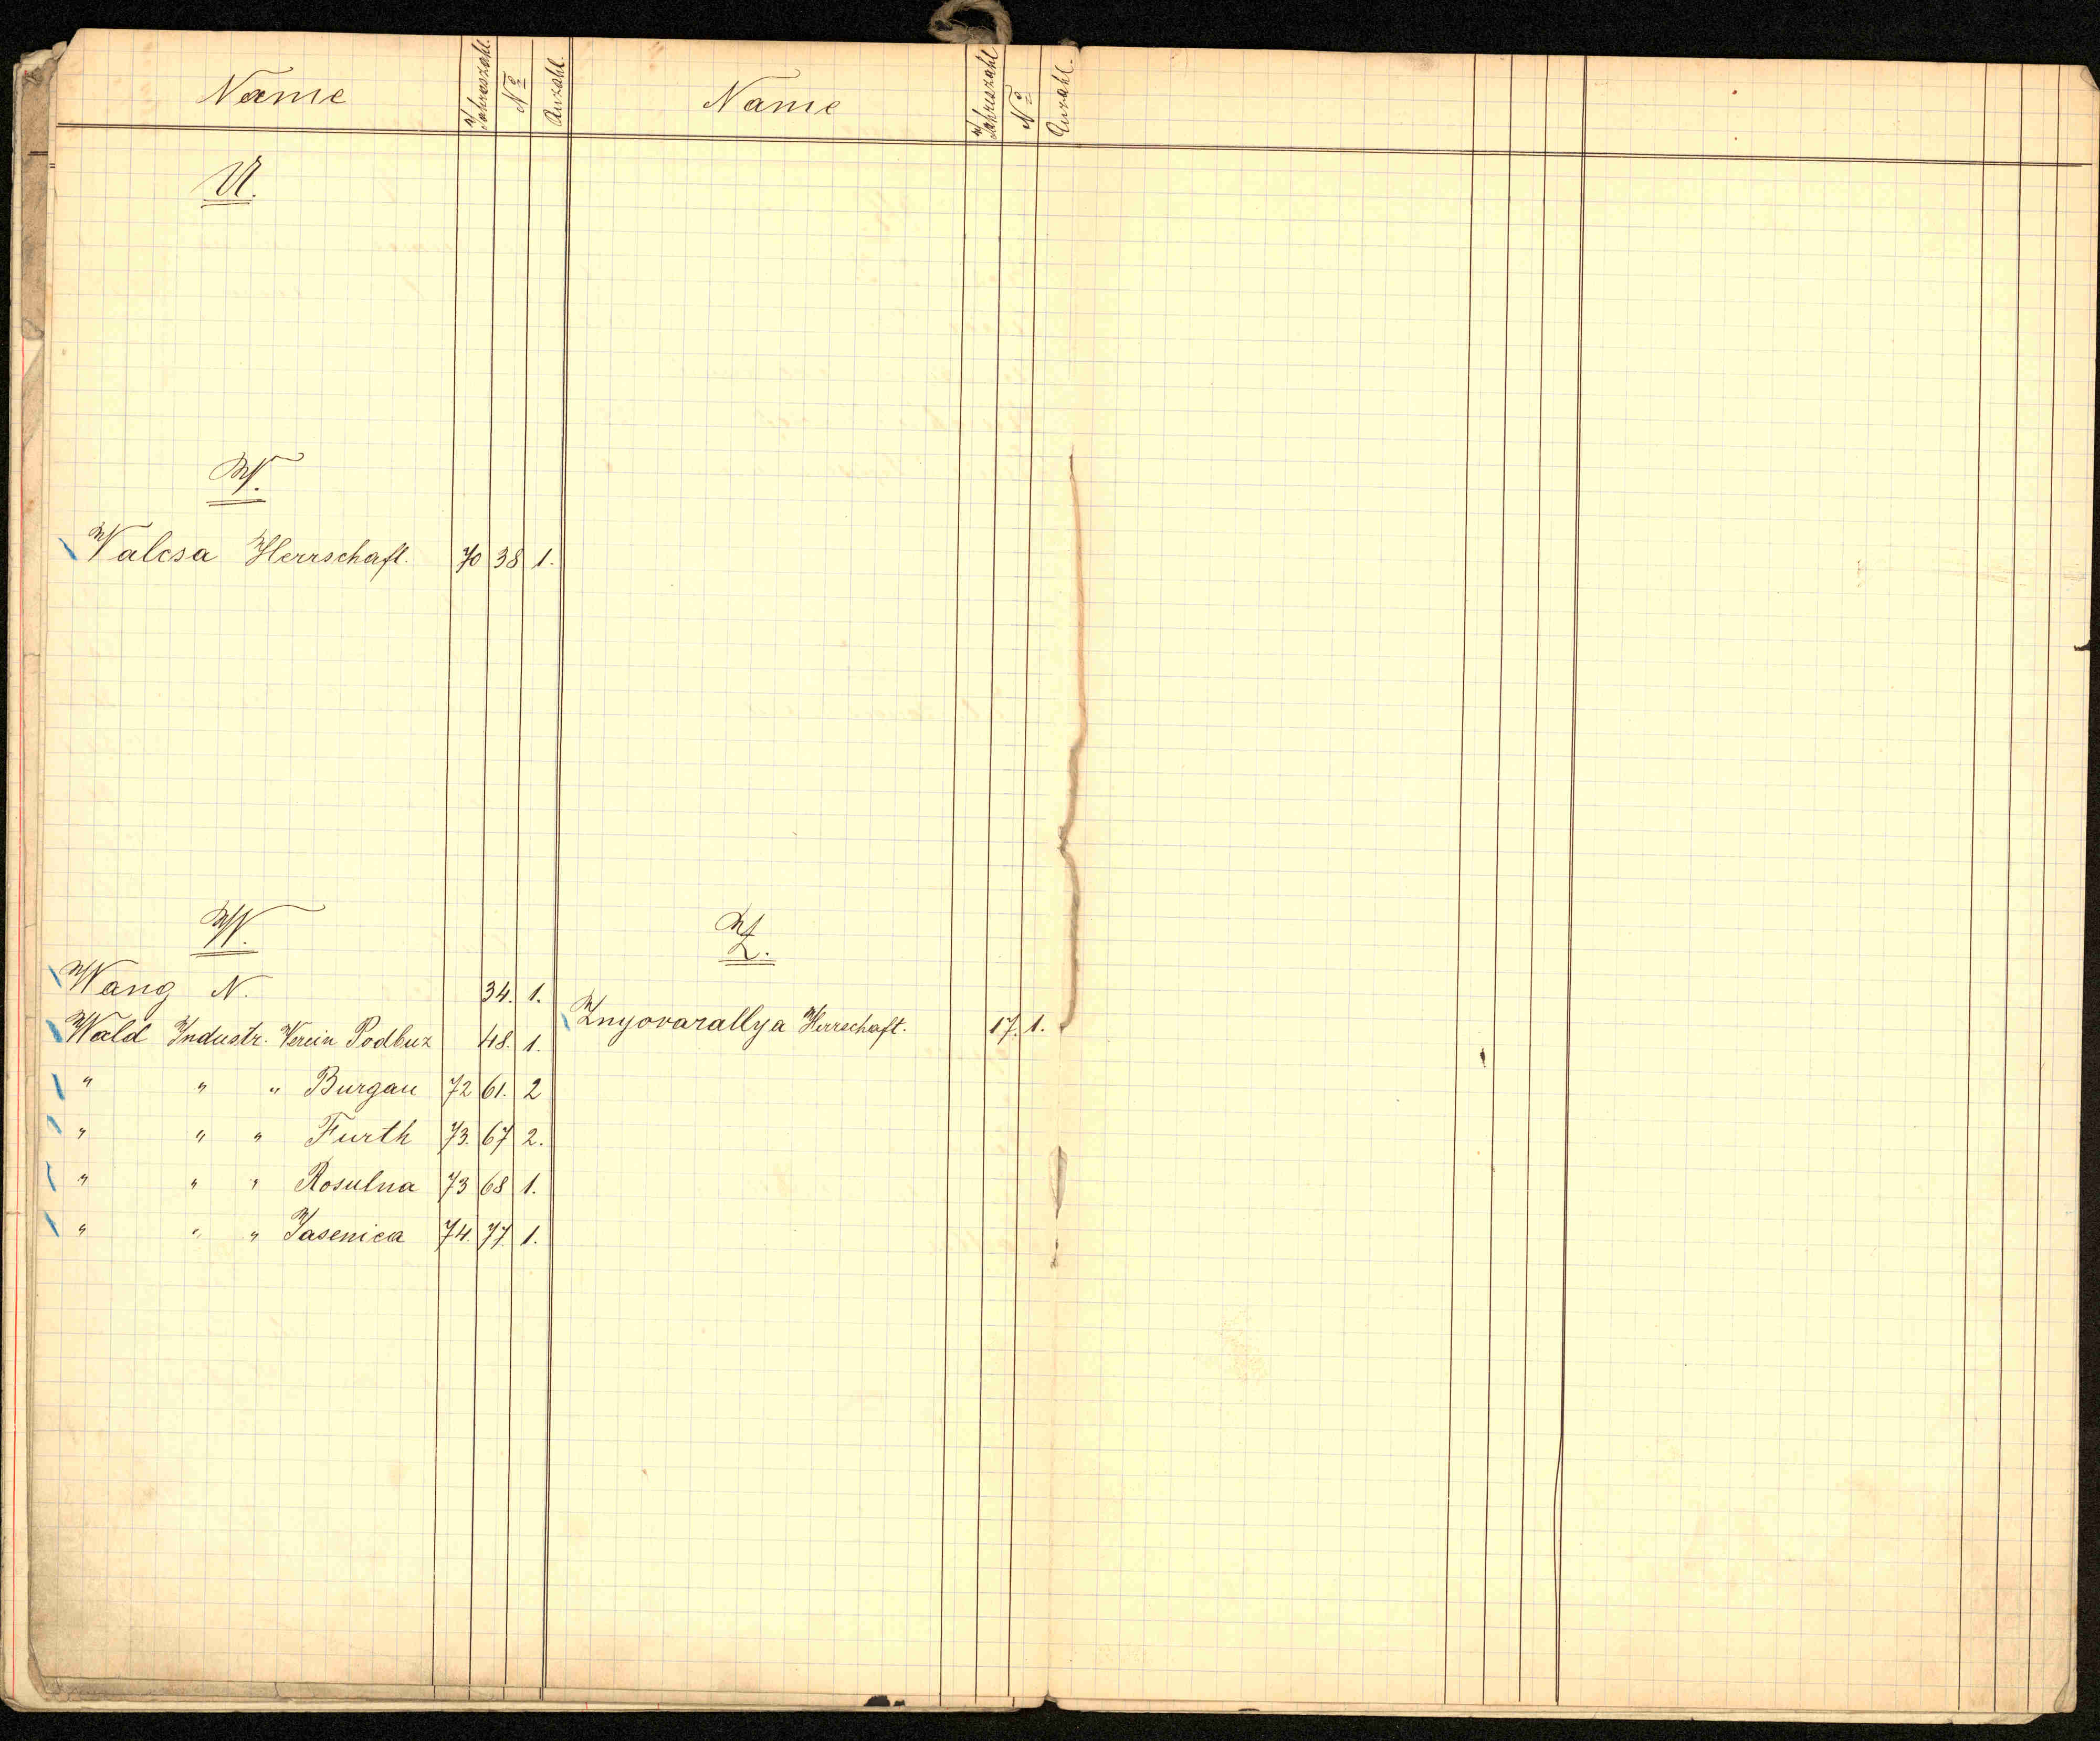 Name Jahreszahl. No Anzahl.
U.
V.
Valcsa Herrschaft. 70 38 1.
W.
Wang N. 34. 1.
Wald Industr. Verein Podbuz 48. 1.
" " " Burgau 72 61. 2
" " " Furth 73. 67 2.
" " " Rosulna 73 68 1.
" " " Jasenica 74. 77. 1.
Name Jahreszahl No Anzahl.
Z.
Znyovarallya Herrschaft. 17. 1.